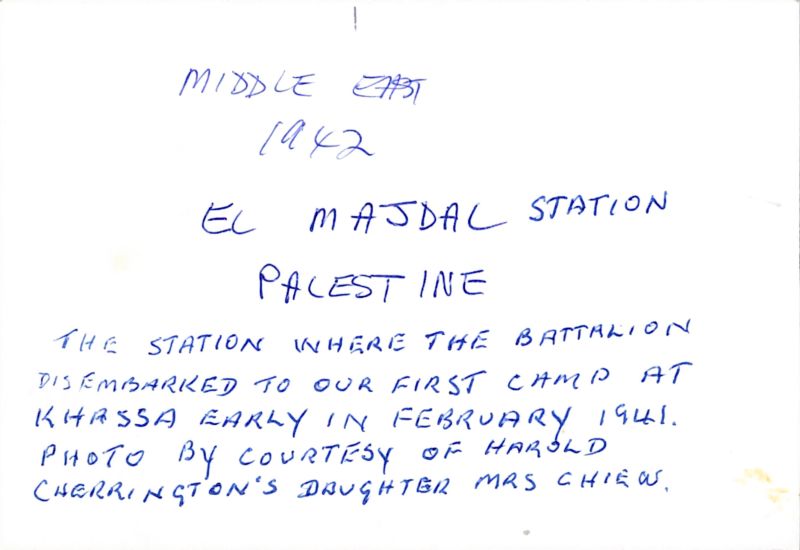 MIDDLE EAST
1942
EL MAJDAL STATION
PALESTINE
THE STATION WHERE THE BATTALION
DISEMBARKED TO OUR FIRST CAMP AT
KHASSA EARLY IN FEBRUARY 1941.
PHOTO BY COURTESY OF HAROLD
CHERRINGTON'S DAUGHTER MRS CHIEW.